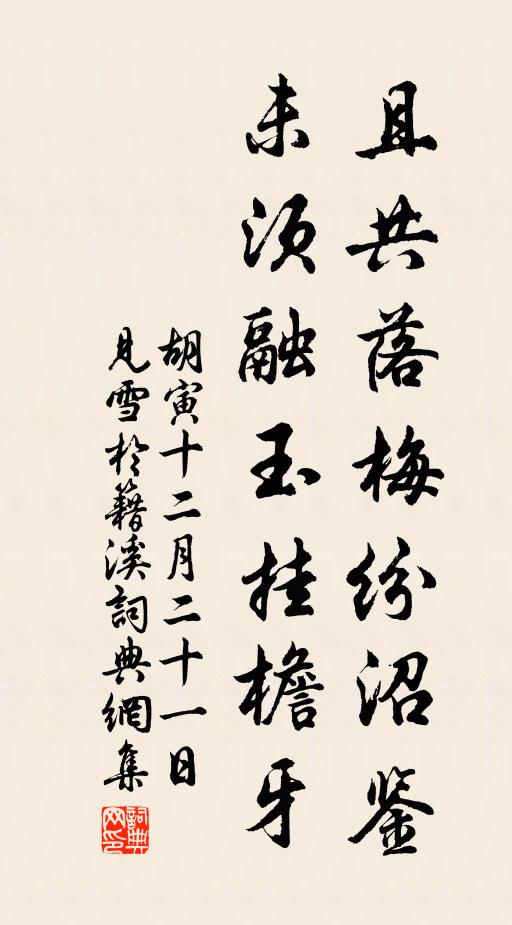 且共落梅纷沼鉴
未须融玉挂檐牙
胡寅十二月二十一日
見雪於籍溪詞典網集
詞典
网印